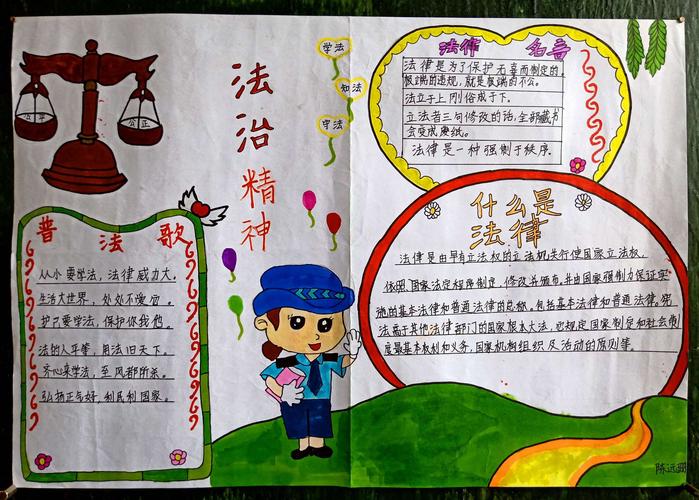 法治精神
学法
知法
守法
公正
普法歌
从小要学法，法律威力大。
生活大世界，处处不离它。
护己要学法，保护你我他。
法的人平等，用法旧天下。
齐心来学法，至风都所杀。
弘扬正气好，利民利国家。
法律 名言
法律是为了保护无辜而制定的。
极端的违规，就是极端的不公。
法立于上则俗成于下。
立法者三句修改的话，全部藏书
会变成废纸。
法律是一种强制于秩序。
什么是
法律
法律是由享有立法权的立法机关行使国家立法权，
依照国家法定程序制定、修改并颁布，并由国家强制力保证实
施的基本法律和普通法律的总称。包括基本法律和普通法律。宪
法高于其他法律部门的国家根本大法，也规定国家制定和社会制
度最基本权利和义务，国家机构组织及活动的原则等。
陈远